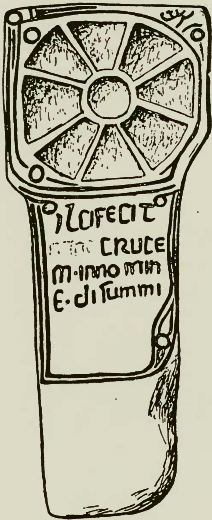 ILOFECIT
CRUCE
M·INNO MIN
E·DI SUMMI